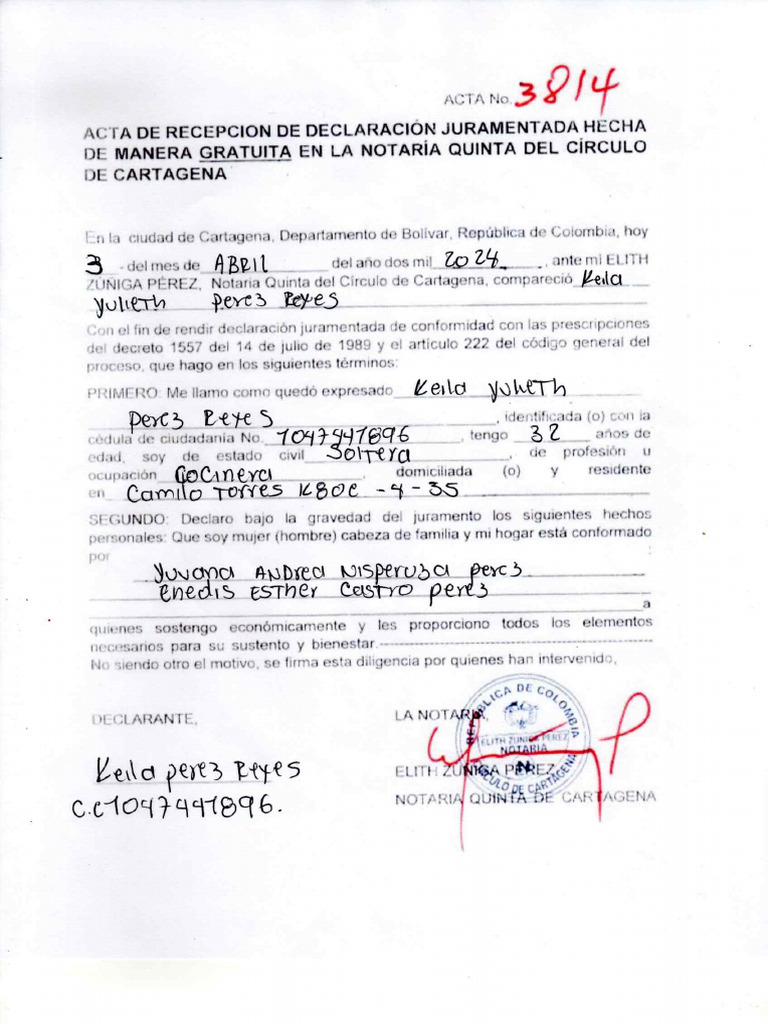 ACTA No. 3814
ACTA DE RECEPCION DE DECLARACIÓN JURAMENTADA HECHA
DE MANERA GRATUITA EN LA NOTARÍA QUINTA DEL CÍRCULO
DE CARTAGENA
En la ciudad de Cartagena, Departamento de Bolívar, República de Colombia, hoy
3 - del mes de ABRIL del año dos mil 2024 , ante mi ELITH
ZÚÑIGA PÉREZ, Notaria Quinta del Círculo de Cartagena, compareció Keila
Yulieth Perez Reyes
Con el fin de rendir declaración juramentada de conformidad con las prescripciones
del decreto 1557 del 14 de julio de 1989 y el artículo 222 del código general del
proceso, que hago en los siguientes términos:
PRIMERO: Me llamo como quedó expresado Keila Yulieth
Perez Reyes , identificada (o) con la
cédula de ciudadanía No. 1047441896 , tengo 32 años de
edad, soy de estado civil Soltera , de profesión u
ocupación Cocinera , domiciliada (o) y residente
en Camilo Torres K80C -4-35
SEGUNDO: Declaro bajo la gravedad del juramento los siguientes hechos
personales: Que soy mujer (hombre) cabeza de familia y mi hogar está conformado
por :
Yuvana ANDREA Nisperuza perez
Enedis ESTHER Castro perez
a
quienes sostengo económicamente y les proporciono todos los elementos
necesarios para su sustento y bienestar.
No siendo otro el motivo, se firma esta diligencia por quienes han intervenido,
DECLARANTE,
LA NOTARIA,
REPÚBLICA DE COLOMBIA
ELITH ZUÑIGA PEREZ
NOTARIA
CÍRCULO DE CARTAGENA
Keila perez Reyes
C.C 1047441896.
ELITH ZÚÑIGA PÉREZ
NOTARIA QUINTA DE CARTAGENA